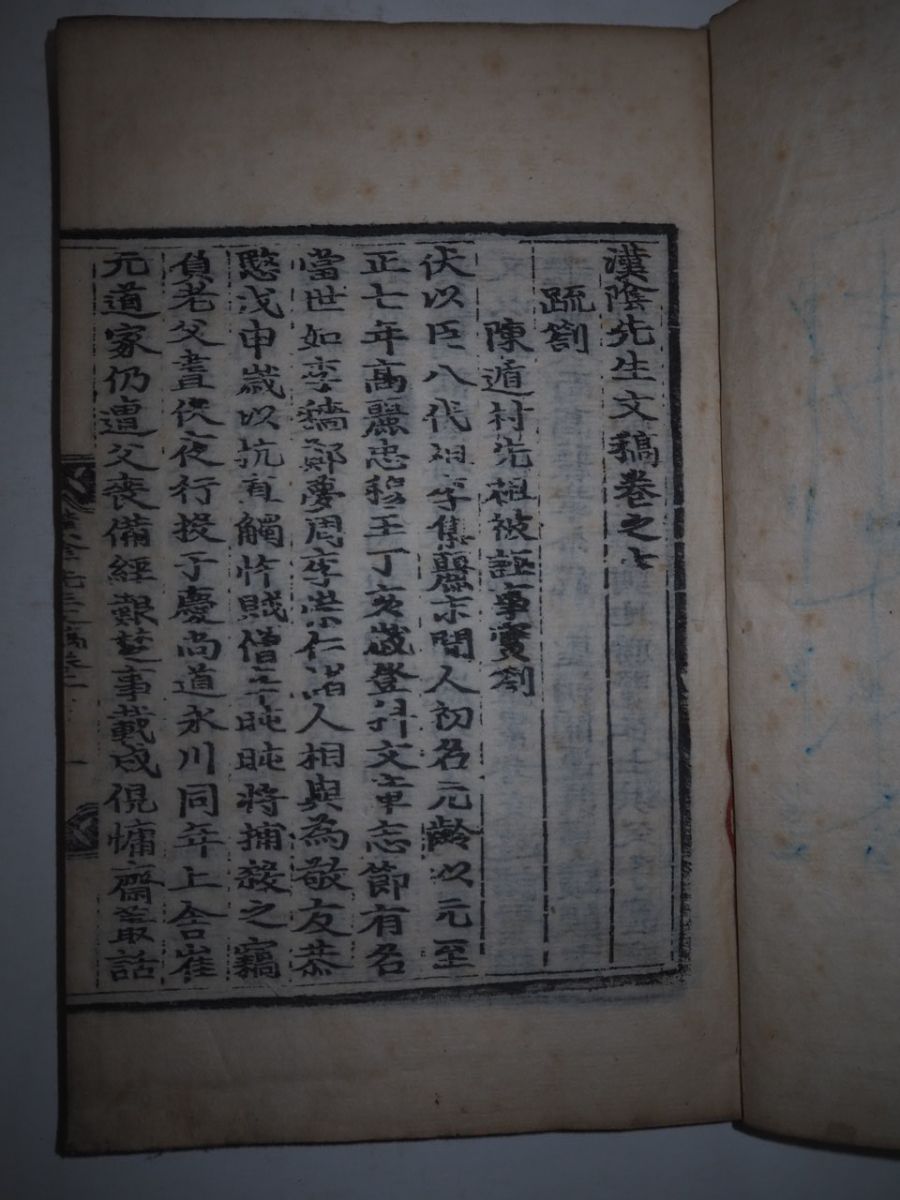 漢陰先生文稿卷之七
疏劄
陳遁村先祖被誣事實劄
伏以臣八代祖李集麗末聞人初名元齡以元至
正七年高麗忠穆王丁亥歲登科文章志節有名
當世如李穡鄭夢周李崇仁諸人相與為敬友恭
愍戊申歲以抗直觸忤賊僧辛旽旽將捕殺之竊
負老父晝伏夜行投于慶尚道永川同年上舍崔
元道家仍遭父喪備經艱楚事載成俔慵齋叢話